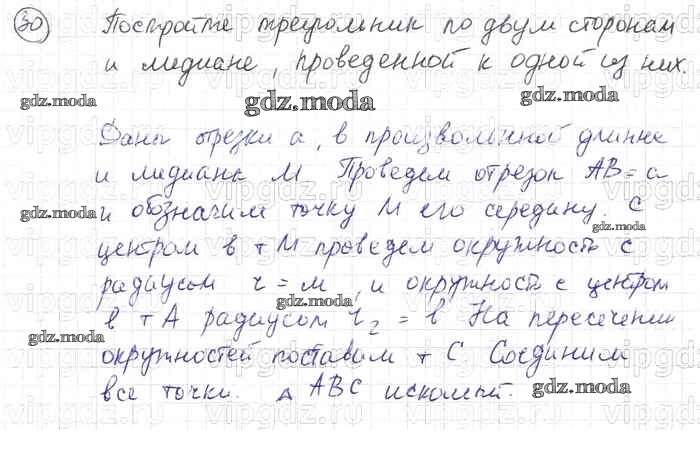 30 Построите треугольник по двум сторонам
и медиане, проведенной к одной из них.
gdz.moda gdz.moda gdz.moda
Даны отрезки a, b произвольнной длинне
и медиана M. Проведем отрезок AB = a
gdz.moda и обозначим точку M его середину. С
gdz.moda
центром в т M проведем окружность с
радиусом r = м, и окружность с центром
gdz.moda
в т A радиусом r₂ = b На пересечении
gdz.moda
окружностей поставим т C Соединим
все точки. △ ABC искомый. gdz.moda
vipgdz.ru